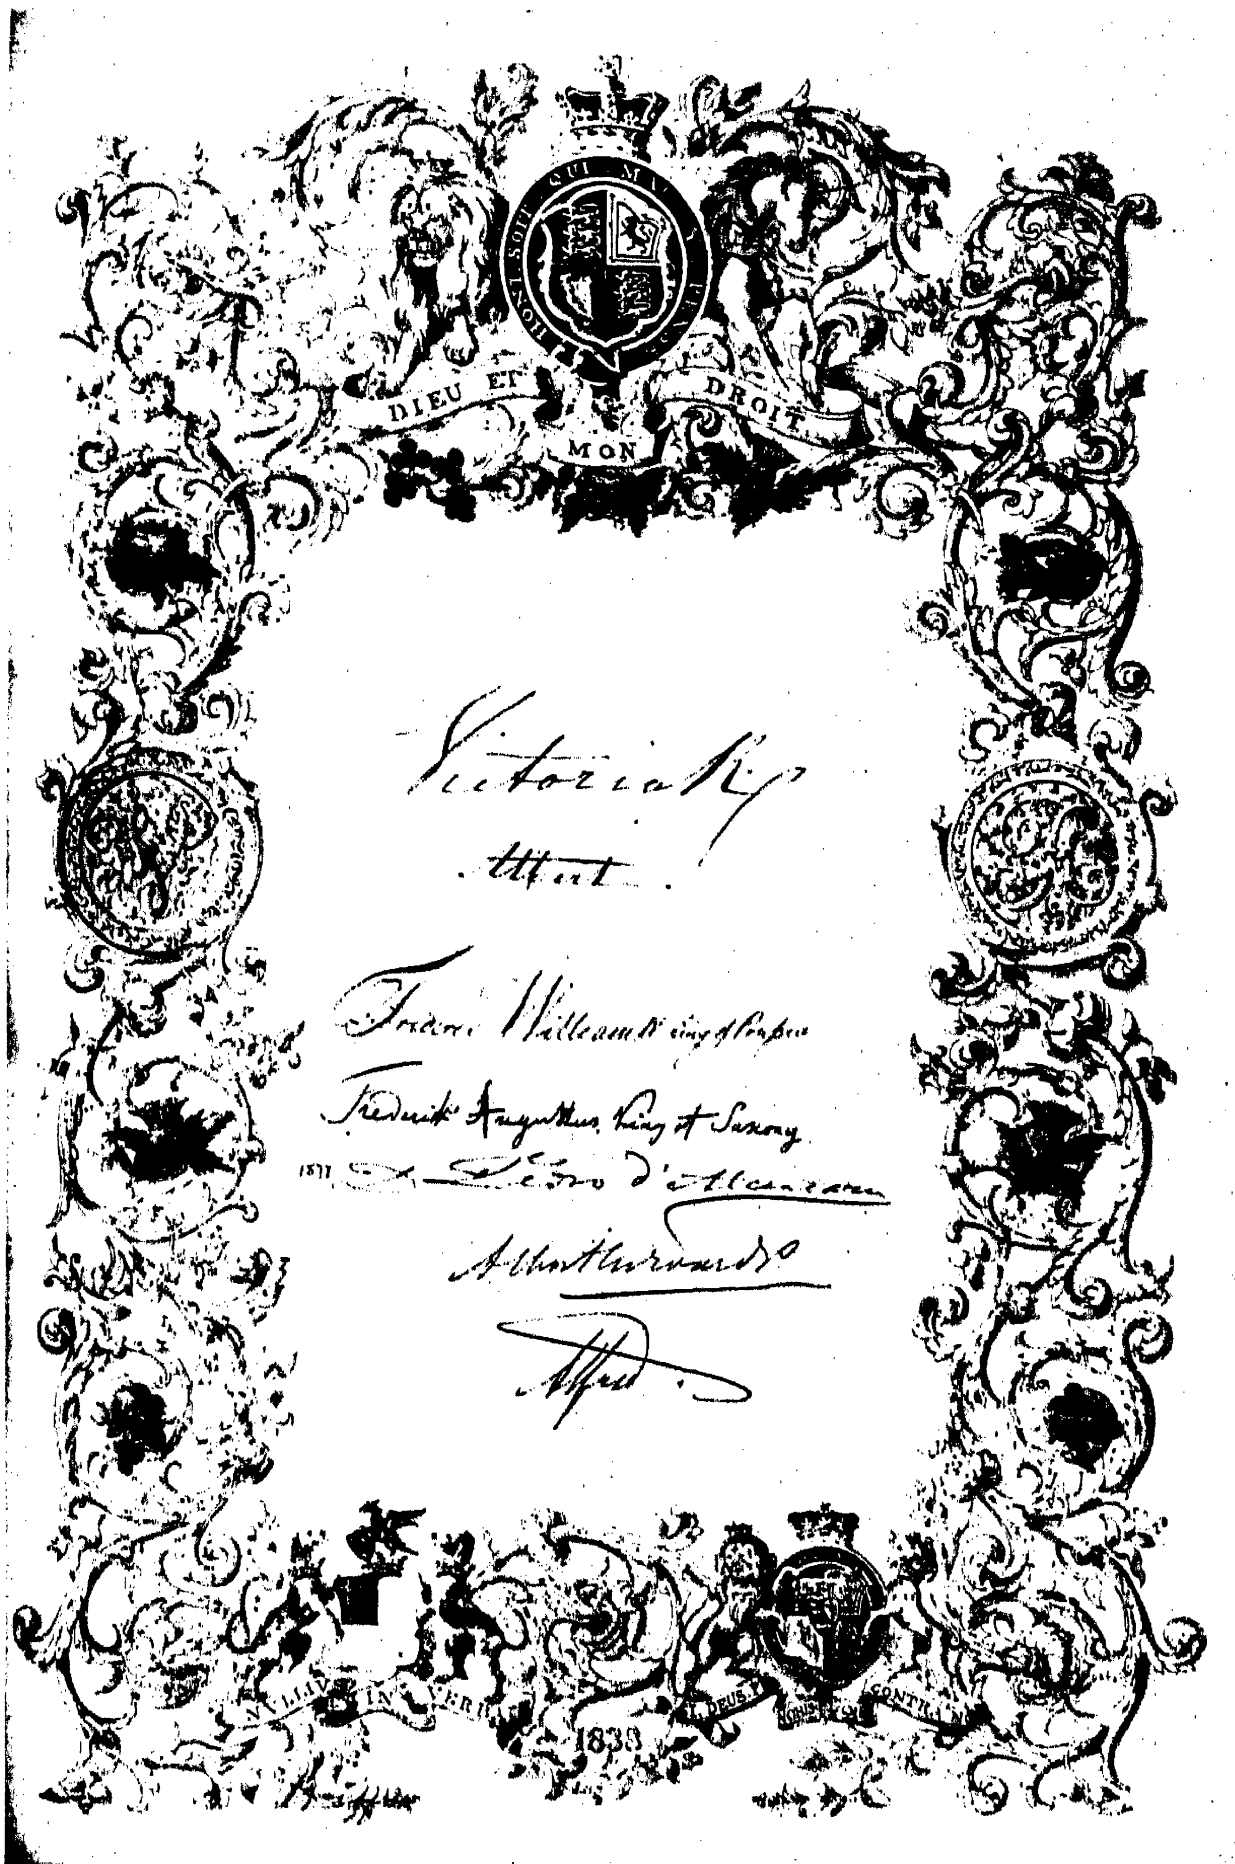 HONI SOIT QUI MAL Y PENSE
DIEU ET
MON
DROIT
Victoria R.
Albert
Frederic William IV king of Prussia
Frederick Augustus, King of Saxony
1877 D. Pedro d'Alcantara
Albert Edward
Alfred.
NULLIUS IN VERBA
DEUS
NOBIS
CONTRA
1838